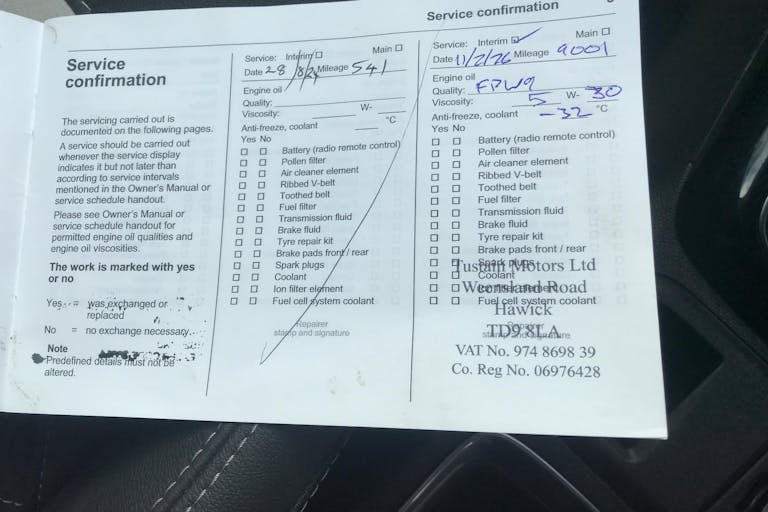 Service confirmation
Service
confirmation
The servicing carried out is
documented on the following pages.
A service should be carried out
whenever the service display
indicates it but not later than
according to service intervals
mentioned in the Owner's Manual or
service schedule handout.
Please see Owner's Manual or
service schedule handout for
permitted engine oil qualities and
engine oil viscosities.
The work is marked with yes
or no
Yes = was exchanged or
replaced
No = no exchange necessary
Note
Predefined details must not be
altered.
Service: Interim ☐ Main ☐
Date 28/8/24 Mileage 541
Engine oil
Quality:
Viscosity: W-
Anti-freeze, coolant °C
Yes No
☐ ☐ Battery (radio remote control)
☐ ☐ Pollen filter
☐ ☐ Air cleaner element
☐ ☐ Ribbed V-belt
☐ ☐ Toothed belt
☐ ☐ Fuel filter
☐ ☐ Transmission fluid
☐ ☐ Brake fluid
☐ ☐ Tyre repair kit
☐ ☐ Brake pads front / rear
☐ ☐ Spark plugs
☐ ☐ Coolant
☐ ☐ Ion filter element
☐ ☐ Fuel cell system coolant
Repairer
stamp and signature
Service: Interim ☑ Main ☐
Date 11/2/26 Mileage 9001
Engine oil
Quality:
Viscosity: 5 W- 30
Anti-freeze, coolant -32 °C
Yes No
☐ ☐ Battery (radio remote control)
☐ ☐ Pollen filter
☐ ☐ Air cleaner element
☐ ☐ Ribbed V-belt
☐ ☐ Toothed belt
☐ ☐ Fuel filter
☐ ☐ Transmission fluid
☐ ☐ Brake fluid
☐ ☐ Tyre repair kit
☐ ☐ Brake pads front / rear
☐ ☐ Spark plugs
Tustain Motors Ltd
☐ ☐ Coolant
☐ ☐ Ion filter element
Weensland Road
☐ ☐ Fuel cell system coolant
Hawick
Repairer
TD9 8LA
stamp and signature
VAT No. 974 8698 39
Co. Reg No. 06976428